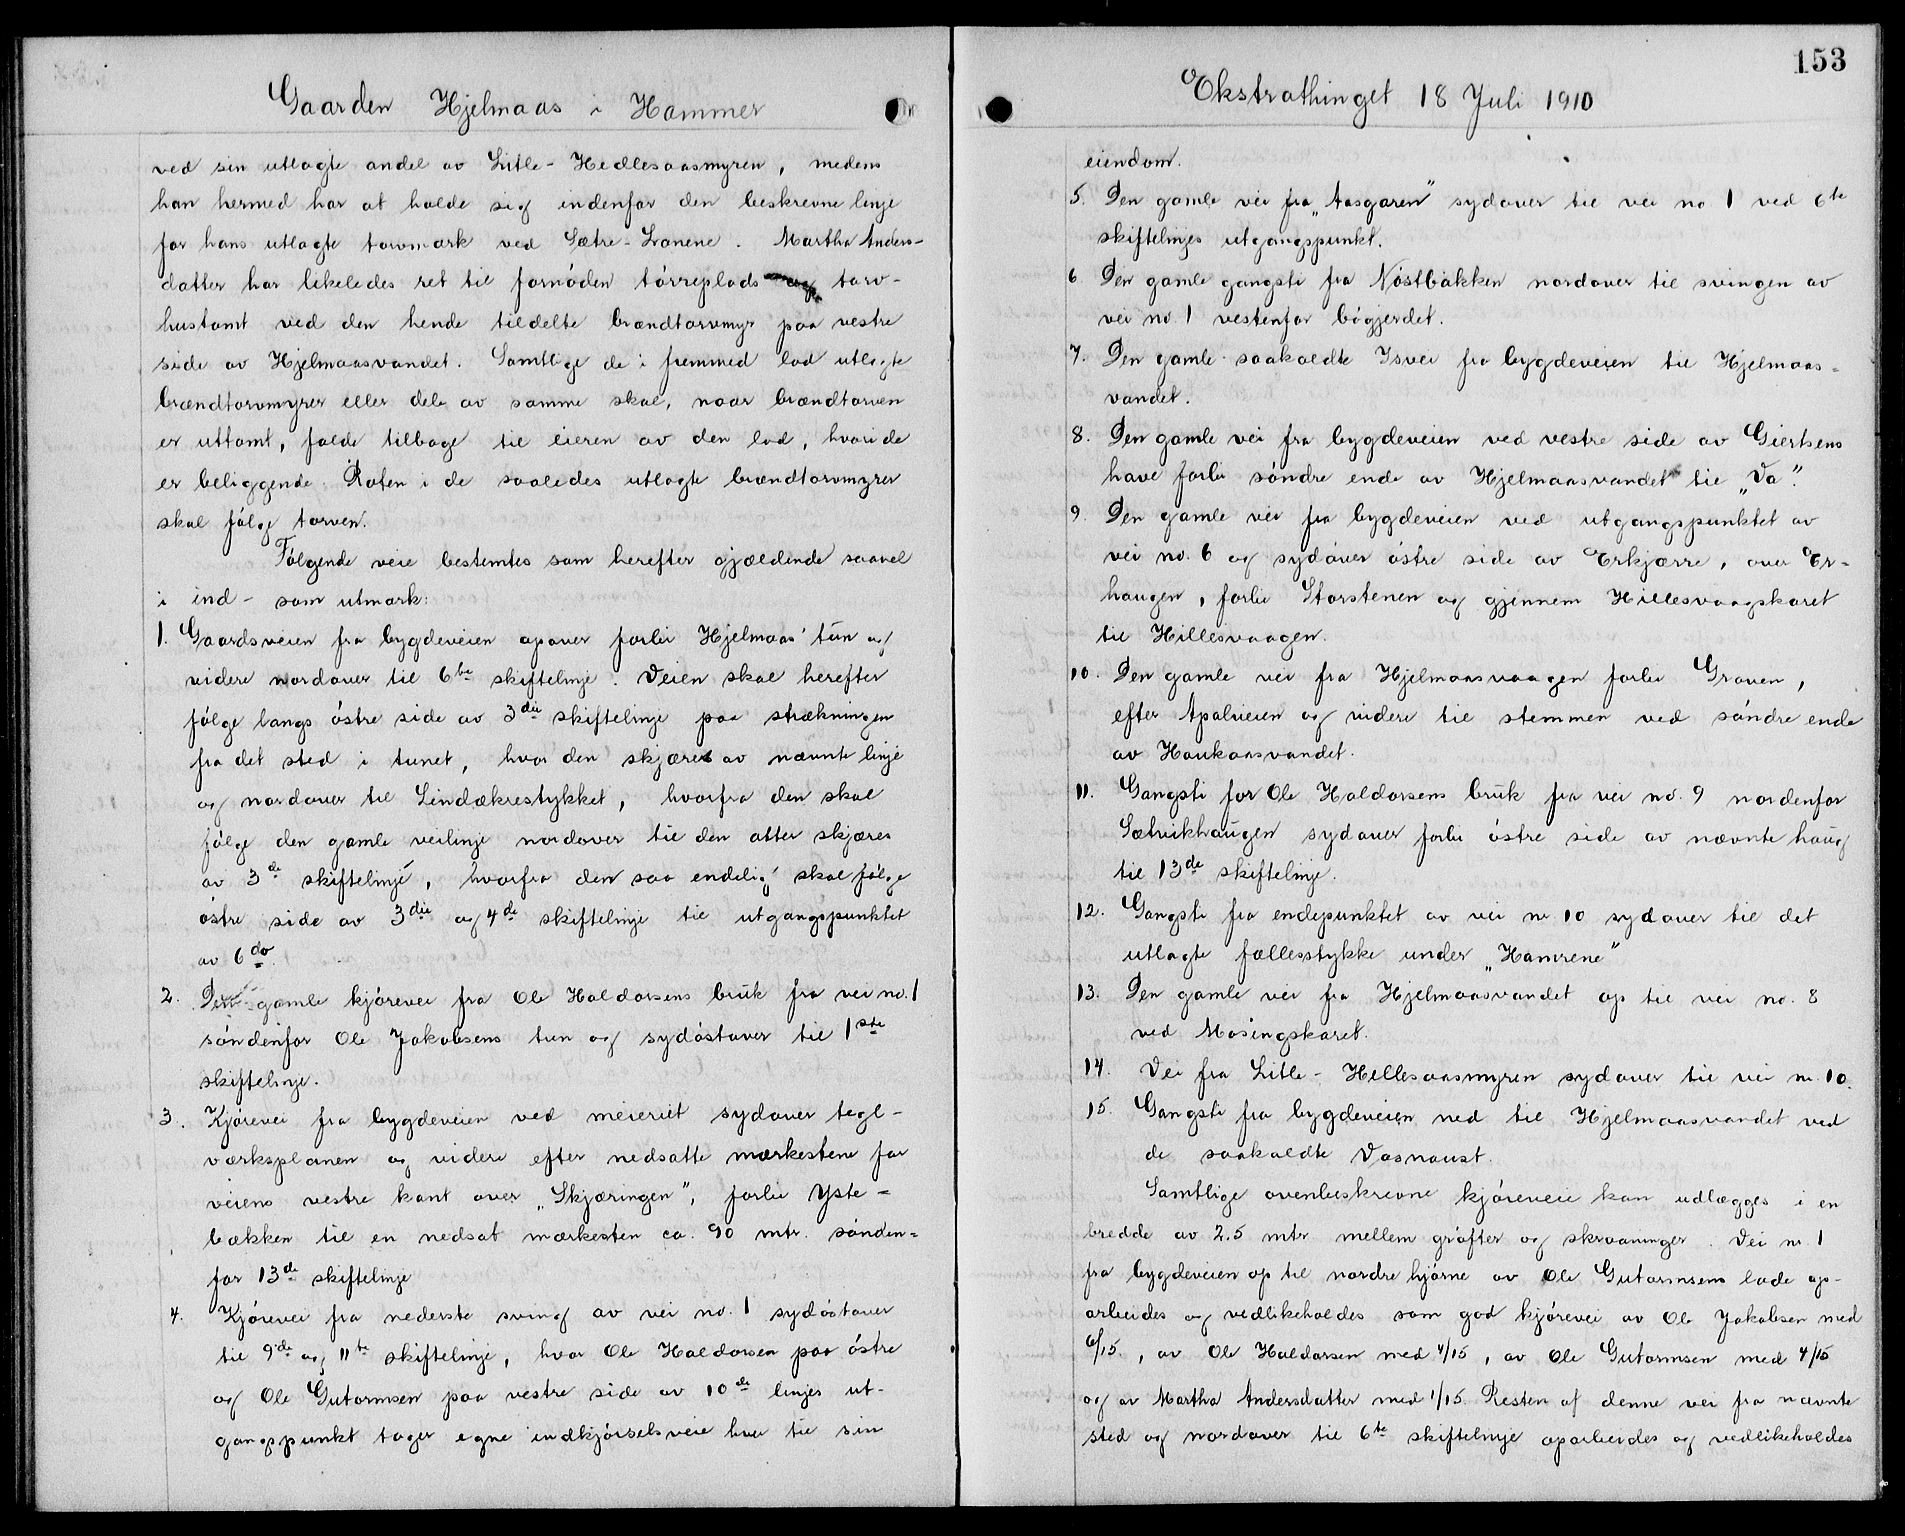 Gaarden Hjelmaas i Hammer
ved sin utlagte andel av Litle-Hedlesaasmyren, medens
han hermed har at holde sig indenfor den beskrevne linje
for hans utlagte torvmark ved Sætre-Lonene. Martha Anders-
datter har likeledes ret til fornöden törreplads og torv-
hustomt ved den hende tildelte brændtorvmyr paa vestre
side av Hjelmaasvandet. Samtlige de i fremmed lod utlagte
brændtorvmyrer eller dele av samme skal, naar brændtorven
er uttomt, falde tilbage til eieren av den lod, hvori de
er beliggende. Roten i de saaledes utlagte brændtorvmyrer
skal fölge torven.
Fölgende veie bestemtes som herefter gjældende saavel
i ind- som utmark:
1. Gaardsveien fra bygdeveien opover forbi Hjelmaas' tun og
videre nordover til 6te skiftelinje. Veien skal herefter
fölge langs östre side av 3die skiftelinje paa strækningen
fra det sted i tunet, hvor den skjæres av nævnte linje
og nordover til Lindækrestykket, hvorfra den skal
fölge den gamle veilinje nordover til den atter skjæres
av 3de skiftelinje, hvorfra den saa endelig skal fölge
östre side av 3die og 4de skiftelinje til utgangspunktet
av 6do.
2. Den gamle kjörevei fra Ole Haldorsens bruk fra vei no. 1
söndenfor Ole Jakobsens tun og sydöstover til 1ste
skiftelinje.
3. Kjörevei fra bygdeveien ved meieriet sydover tegl-
værksplanen og videre efter nedsatte mærkestene for
veiens vestre kant over „Skjæringen", forbi Yste-
bækken til en nedsat mærkesten ca. 90 mtr. sönden-
for 13de skiftelinje
4. Kjörevei fra nederste sving av vei no. 1 sydöstover
til 9de og 11te skiftelinje, hvor Ole Haldorsen paa östre
og Ole Gutormsen paa vestre side av 10de linjes ut-
gangspunkt tager egne indkjörselsveie hver til sin
153
Ekstrathinget 18 Juli 1910
eiendom.
5. Den gamle vei fra „Aasgaren" sydover til vei no 1 ved 6te
skiftelinjes utgangspunkt.
6. Den gamle gangsti fra Nöstbakken nordover til svingen av
vei no. 1 vestenfor bögjerdet.
7. Den gamle saakaldte Isvei fra bygdeveien til Hjelmaas-
vandet.
8. Den gamle vei fra bygdeveien ved vestre side av Giertsens
have forbi söndre ende av Hjelmaasvandet til „Va".
9. Den gamle vei fra bygdeveien ved utgangspunktet av
vei no. 6 og sydover östre side av Erkjærre, over Er-
haugen, forbi Storstenen og gjennem Hillesvaagskaret
til Hillesvaagen.
10. Den gamle vei fra Hjelmaasvaagen forbi Graven,
efter Apalveien og videre til stemmen ved söndre ende
av Haukaasvandet.
11. Gangsti for Ole Haldorsens bruk fra vei no. 9 nordenfor
Sætrvikhaugen sydover forbi östre side av nævnte haug
til 13de skiftelinje.
12. Gangsti fra endepunktet av vei no 10 sydover til det
utlagte fællesstykke under „Hamrene"
13. Den gamle vei fra Hjelmaasvandet op til vei no. 8
ved Mosingskaret.
14. Vei fra Litle-Hellesaasmyren sydover til vei no 10.
15. Gangsti fra bygdeveien ned til Hjelmaasvandet ved
de saakaldte Vasnaust.
Samtlige ovenbeskrevne kjöreveie kan udlægges i en
bredde av 2.5 mtr mellem gröfter og skraaninger. Vei no. 1
fra bygdeveien op til nordre hjörne av Ole Gutormsens lade op-
arbeides og vedlikeholdes som god kjörevei av Ole Jakobsen med
6/15., av Ole Haldorsen med 4/15, av Ole Gutormsen med 4/15
og av Martha Andersdatter med 1/15. Resten af denne vei fra nævnte
sted og nordover til 6te skiftelinje oparbeides og vedlikeholdes